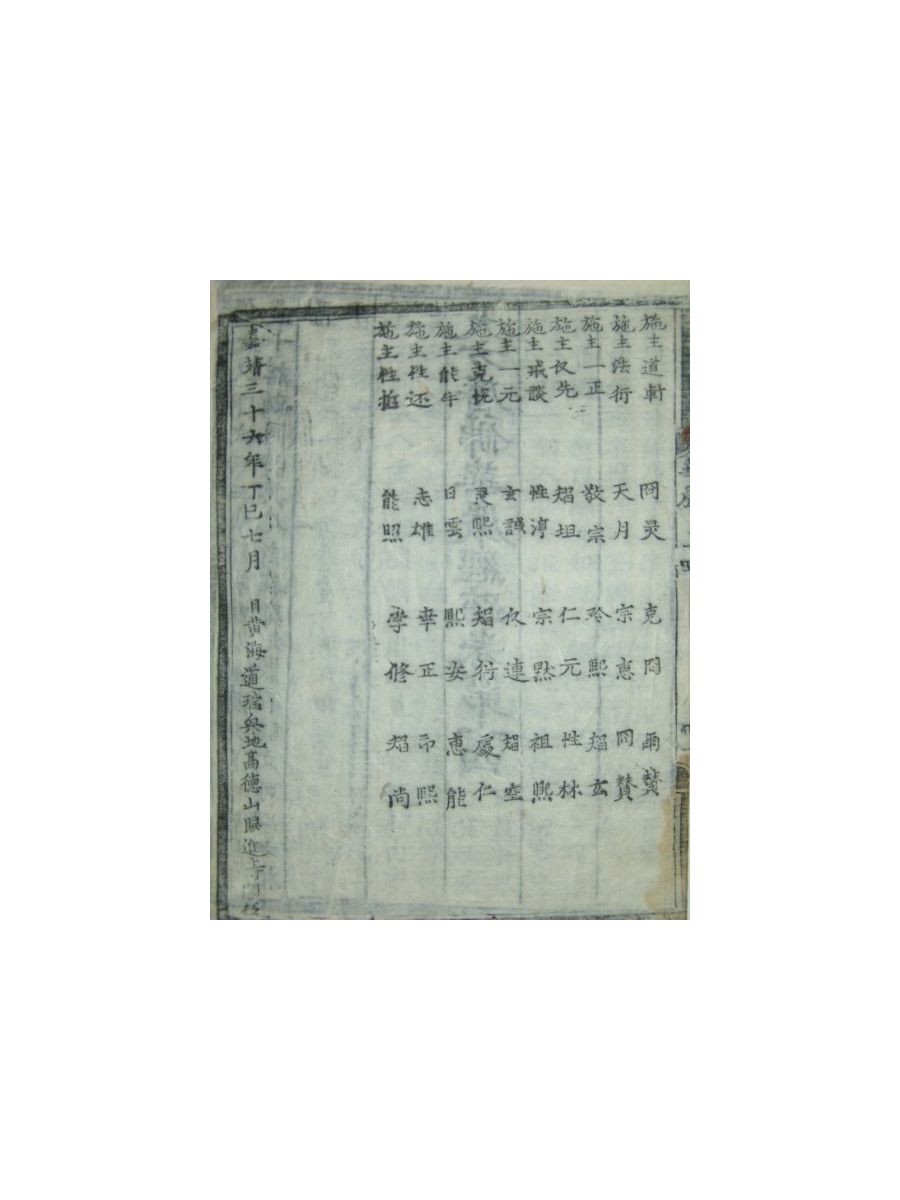 施主道軒 冏灵 克冏 雨賛
施主法行 天月 宗惠 冏賛
施主一正 敬宗 玲熙 㫼玄
施主仅先 㫼坦 仁元 性林
施主戒談 性淳 宗黙 祖熙
施主一元 玄誠 仅連 㫼空
施主克悅 灵熙 㫼行 處仁
施主能牛 日雲 熙安 惠能
施主性还 志雄 幸正 印熙
施主性 能照 李修 㫼尚
嘉靖三十六年丁巳七月 日黄海道瑞興地高德山歸進寺開板